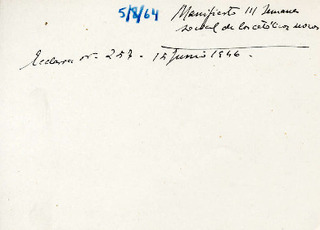 5/8/64
Manifiesto III Semana
social de los católicos
Ecclesia nº 257 - 15 junio 1946.